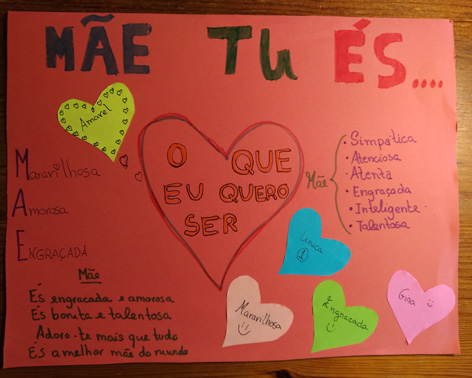 MÃE TU ÉS....
Amorel
O QUE
EU QUERO
SER
Mãe
• Simpática
• Atenciosa
• Atenta
• Engraçada
• Inteligente
• Talentosa
Maravilhosa
Amorosa
ENGRAÇADA
Única
1
Maravilhosa
Engraçada
Gira
Mãe
És engraçada e amorosa
És bonita e talentosa
Adoro-te mais que tudo
És a melhor mãe do mundo